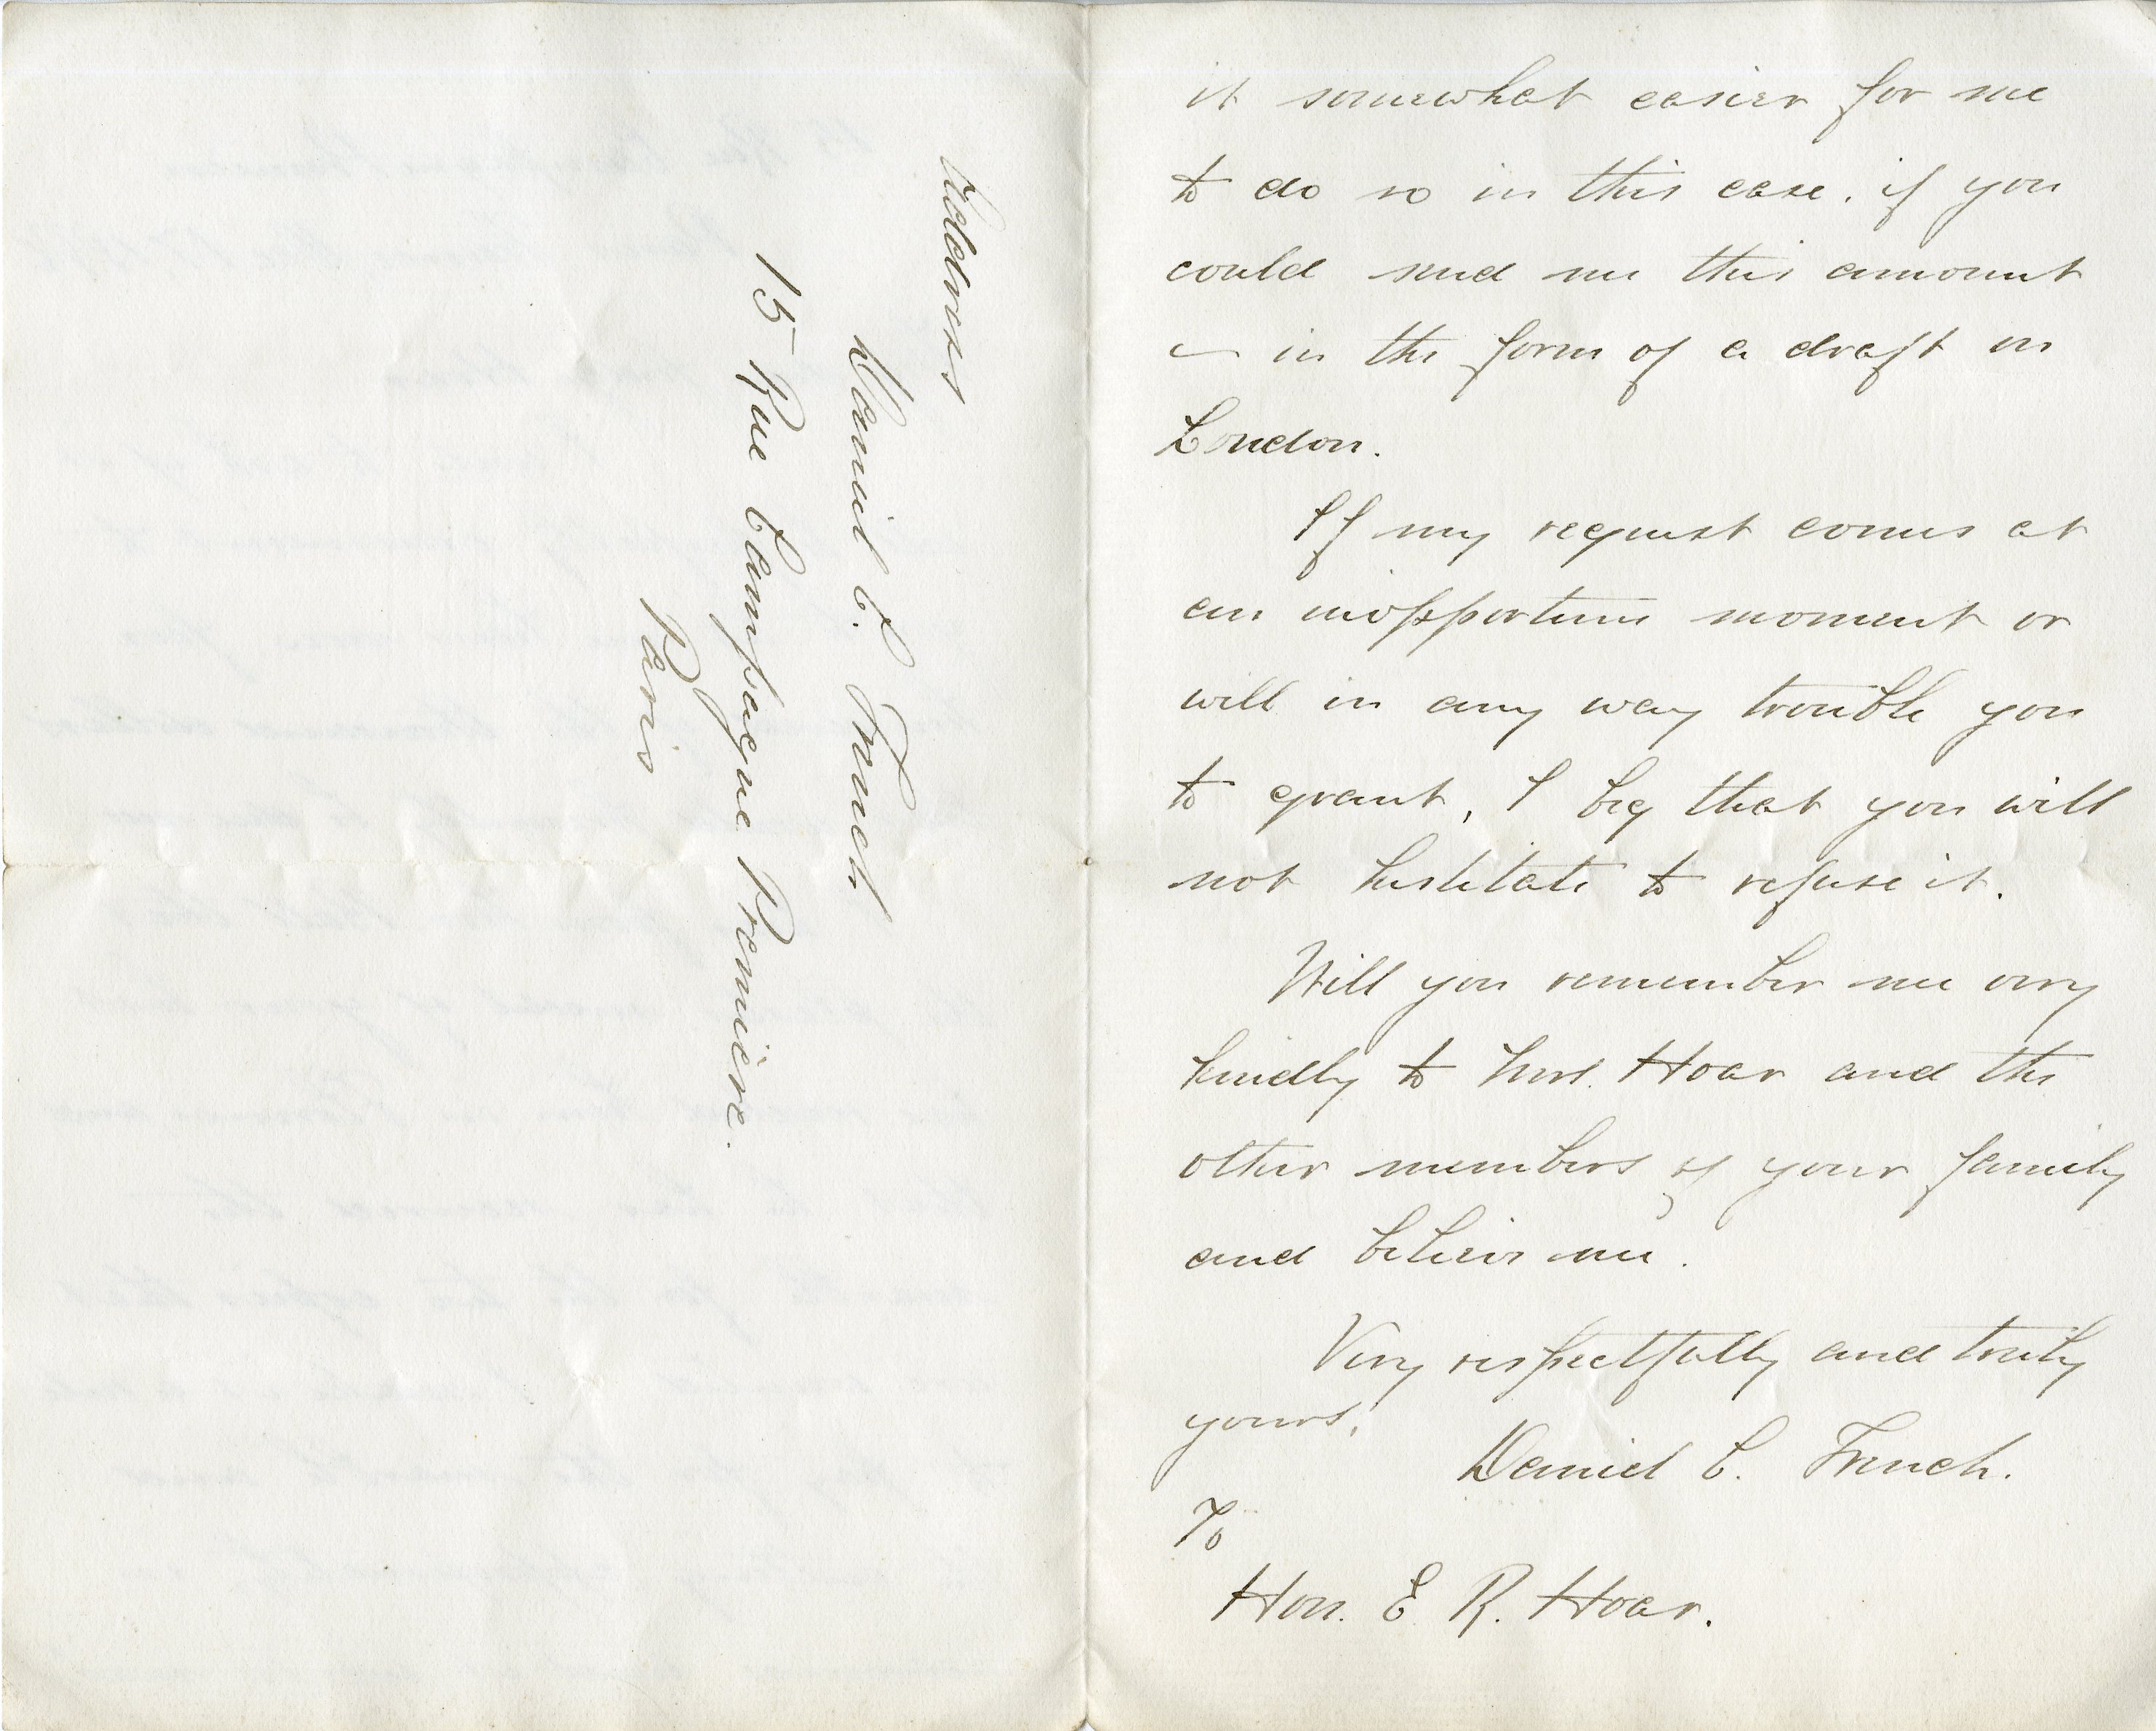 Address
Daniel C. French
15 Rue Campagne Premiére.
Paris
it somewhat easier for me
to do so in this case, if you
could send me this amount
— in the form of a draft on
London.
If my request comes at
an inopportune moment or
will in any way trouble you
to grant, I beg that you will
not hesitate to refuse it.
Will you remember me very
kindly to Mrs. Hoar and the
other members of your family
and believe me.
Very respectfully and truly
yours,
Daniel C. French.
To
Hon. E. R. Hoar.